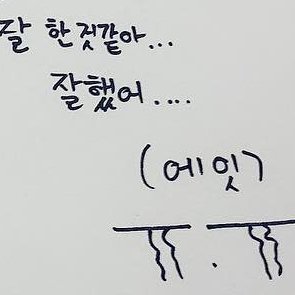 잘 한 것같아...
잘했어....
(에잇)
ㅠ.ㅠ